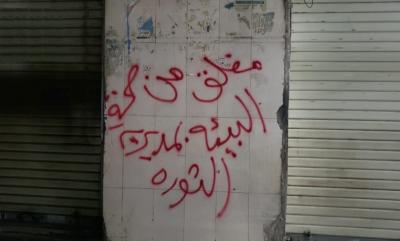 مغلق من لجنة
البيئه بمديرية
الثوره